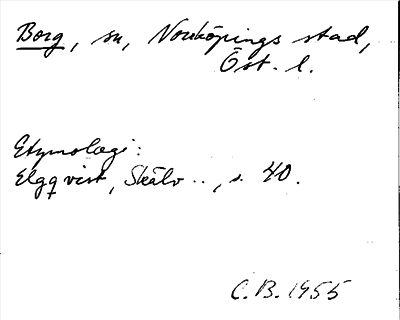 Borg, sn, Norrköpings stad,
Öst. l.
Etymologi:
Elgqvist, Skälv .., s. 40.
C.B. 1955